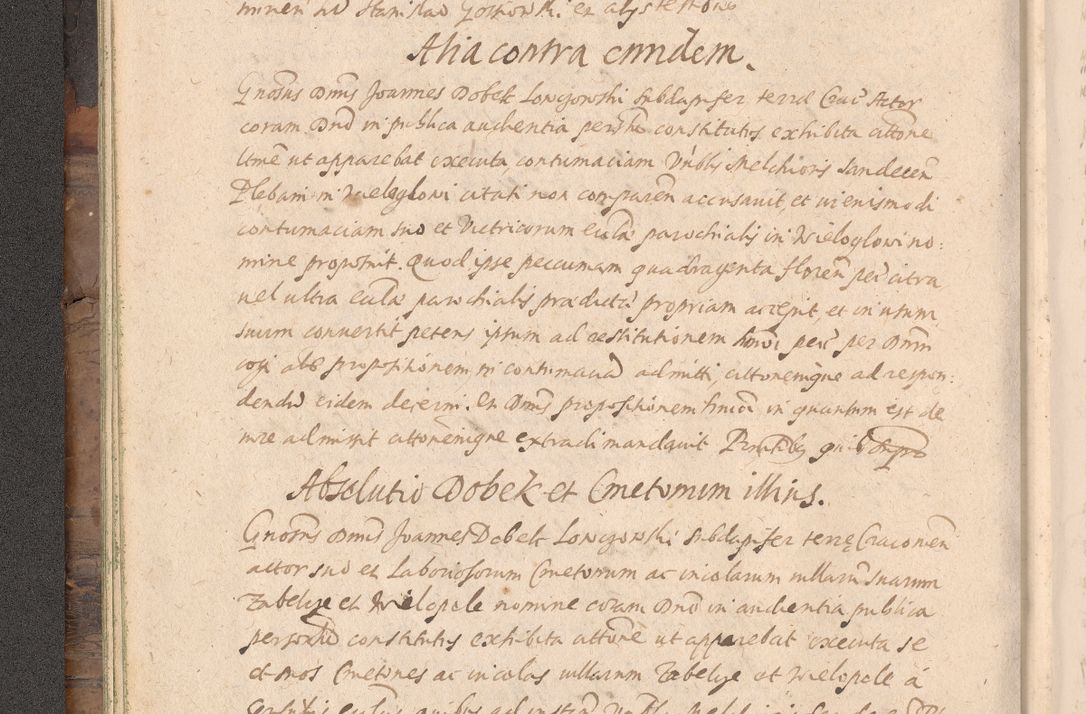 minem ad Stanislao Goskowski et alys testibus
Alia contra eundem.
Gnosus Dnus Joannes Dobek Lowczowski Subdapifer terrae Crac Actor
coram Dno in publica audientia persone constitutus exhibita attone
ltme ut apparebat executa contumaciam Vnblis Melchioris Sandecen
Plebani in Wieloglowi citati non comparen accusavit, et in eiusmodi
contumaciam suo et Victricorum eccla parochialis in Wieloglowi no:
mine proposuit. Quod ipse peccuniam quadragenta floren pec citra
vel ultra eccla parochialis praedicta propriam accepit, et in usum
suum convertit petens ipsum ad restitutionem huioi pec per Dnm
cogi als propositionem in contumacia admitti, attonemque ad respon:
dendu eidem decerni. Et Dnus propositionem huioi in quantum est de
iure admisit attonemque extradi mandavit Pntibus quibus supra
Absolutio Dobek et Cmetonum illius.
Gnosus Dnus Joannes Dobek Lowczowski Subdapifer terrę Cracovien
actor suo et Laboriosorum Cmetonum ac incolarum villarum suarum
Zabelcze et Wielopole nomine coram Dno in audientia publica
persone constitutus exhibita attone ut apparebat executa se
et suos Cmetones ac incolas villarum Zabelcze et Wielopole á